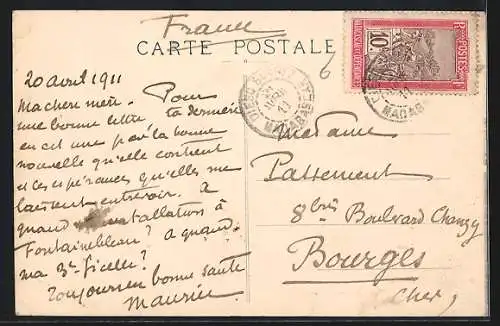 France
CARTE POSTALE
6
R F POSTES
10
MADAGASCAR ET DEPENDANCES
DIEGO-SUAREZ
11
MADAGASCAR
20 avril 1911
Ma chère mère. Pour
une bonne lettre, ta dernière
en est une par la bonne
nouvelle qu'elle contient
et les espérances qu'elles me
laissent entrevoir. A
quand installation à
Fontainebleau? à quand
ma 3e ficelle?
Toujours en bonne santé
Maurice
Madame
Pattement
8 bis Boulevard Chanzy
Bourges
Cher